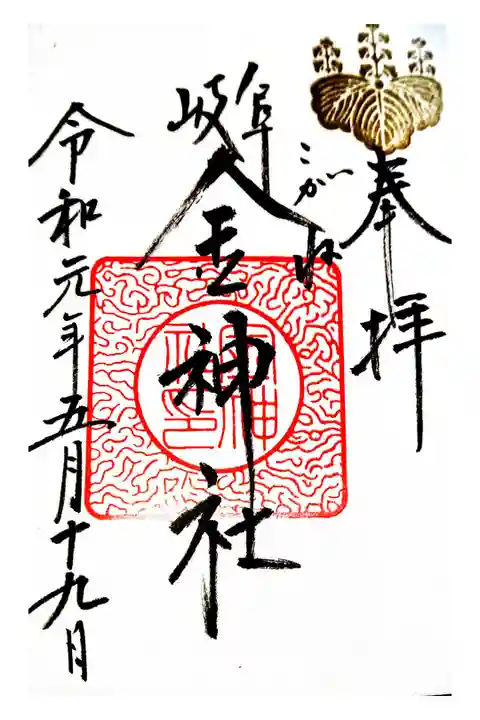 奉拝
こがね
岐阜
金神社
令和元年五月十九日